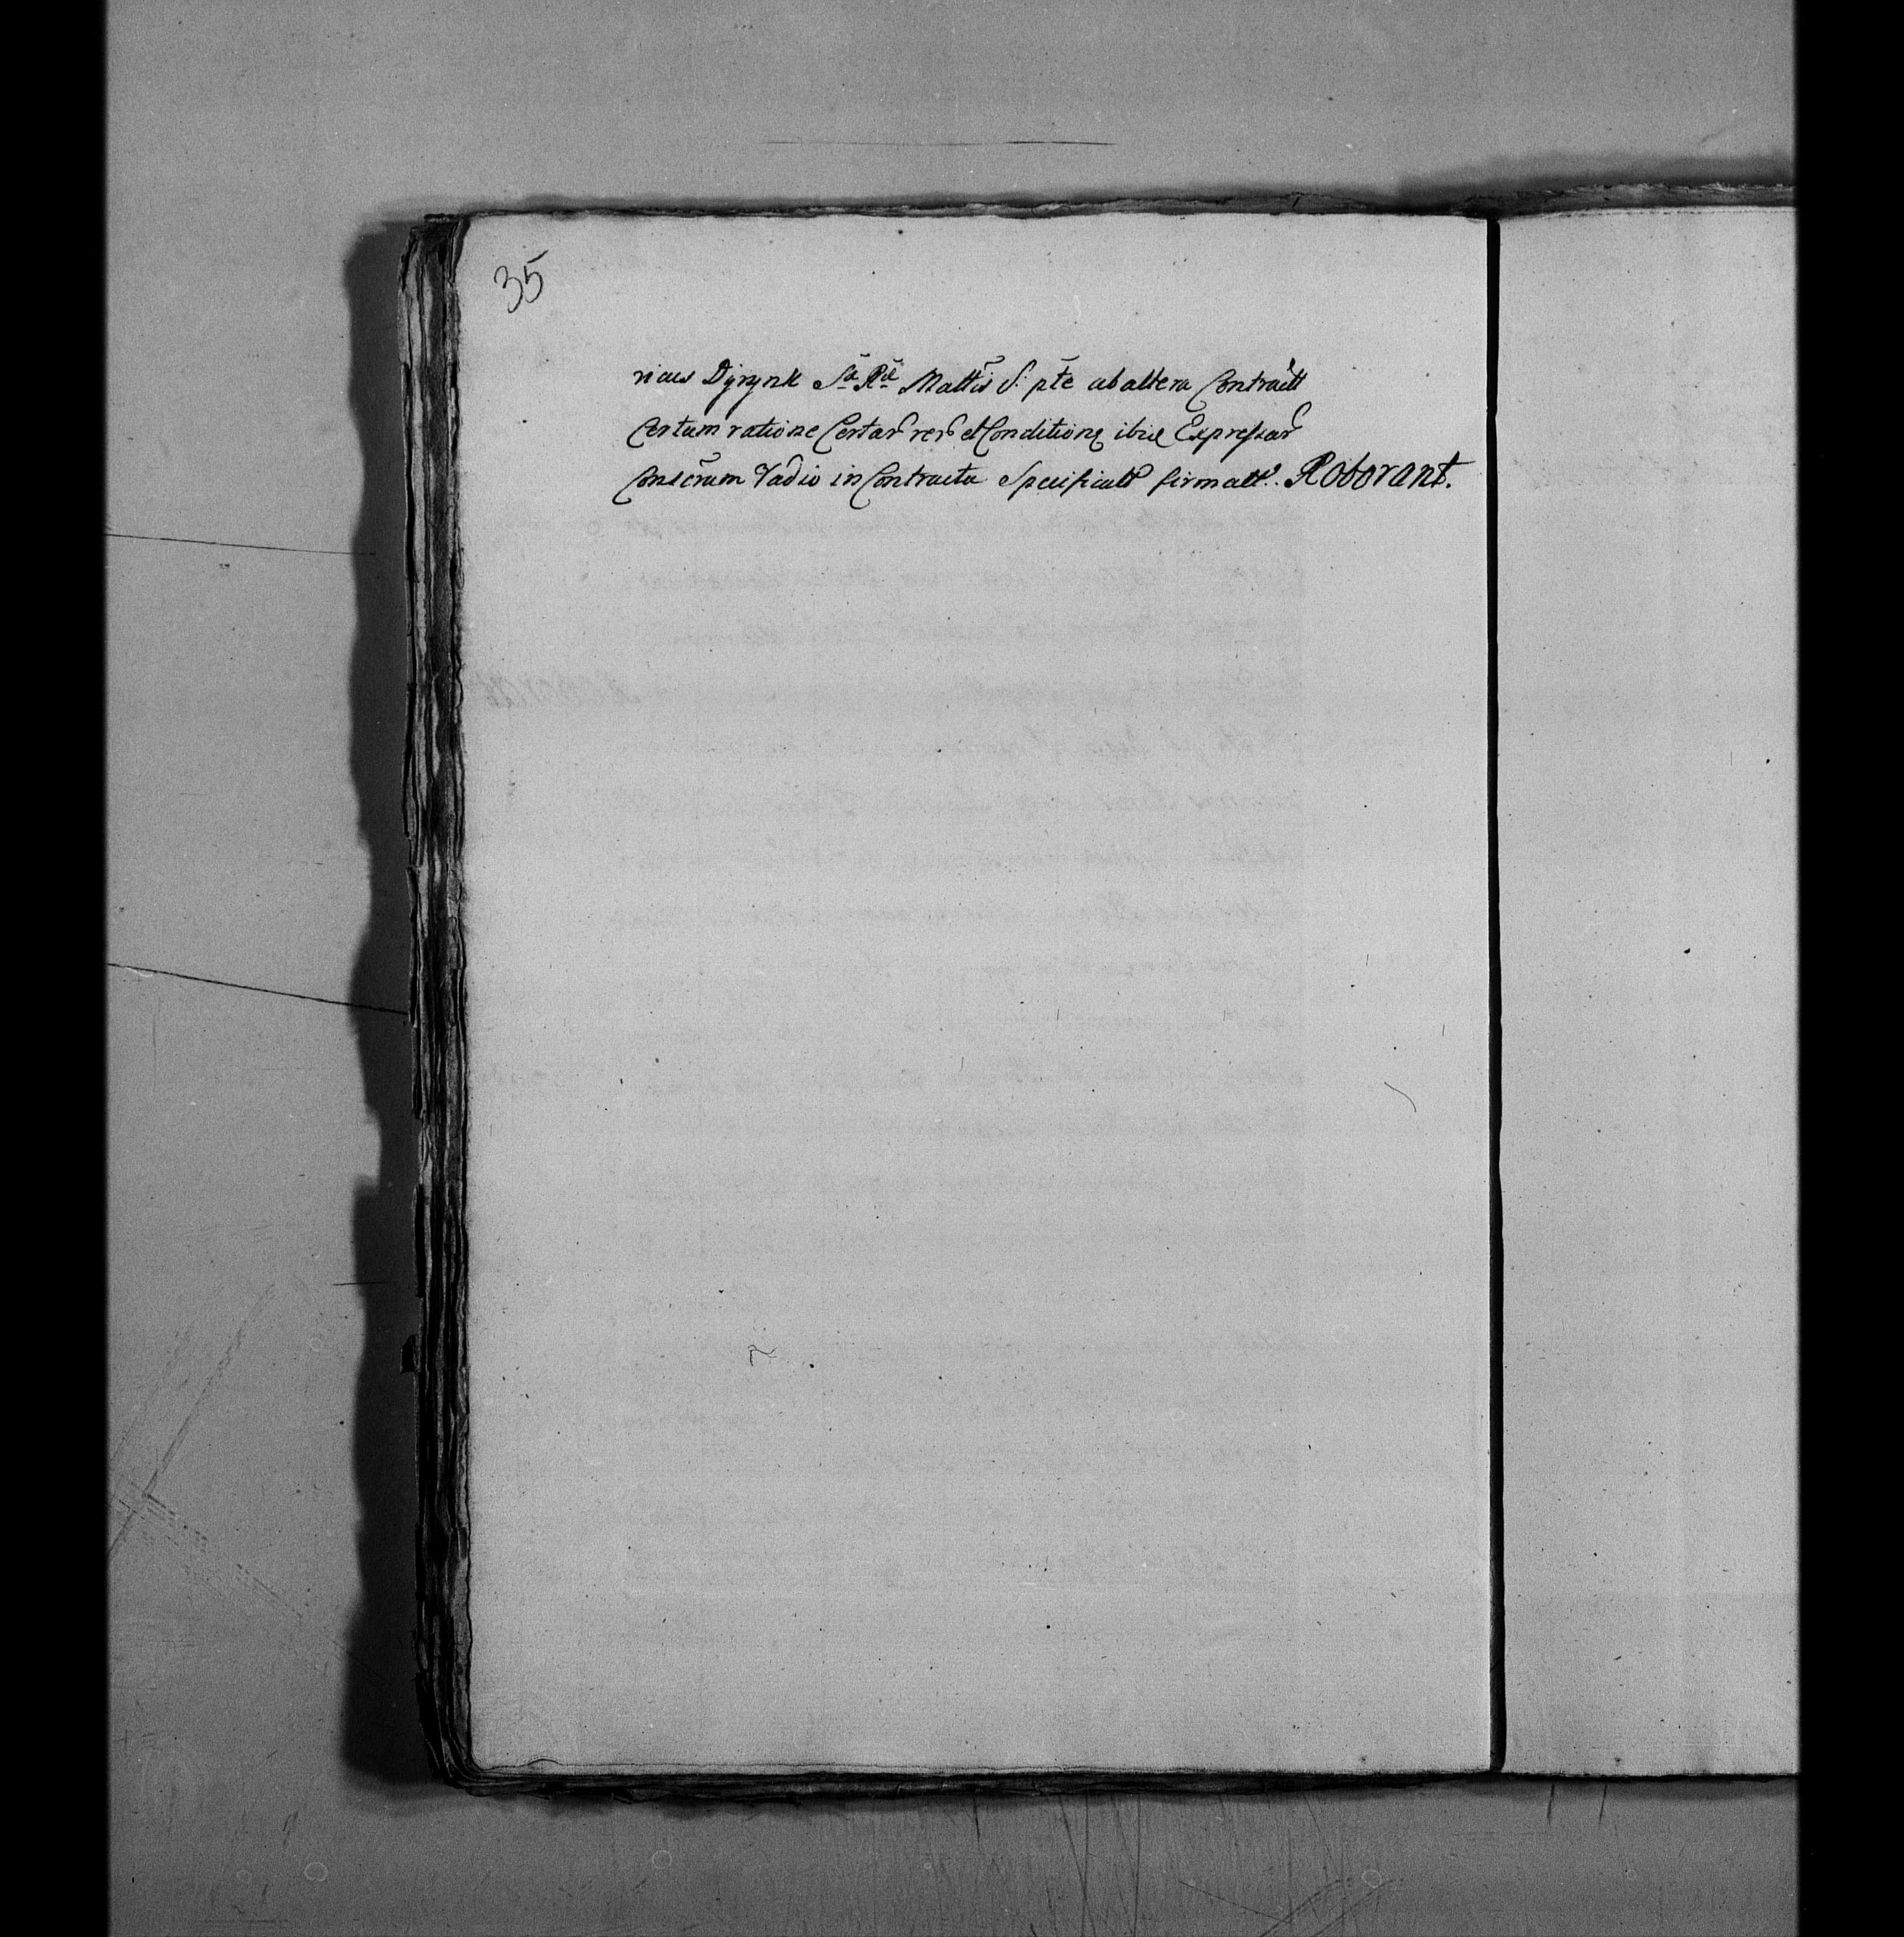 35
ricus Dyrynk Sæ Ræ Mattis S: pte ab altera Contractt
Certum ratione Certar rer et Conditionq ibid Expressar
Conscrum Vadio in Contractu Specificatt firmatt. Roborant.